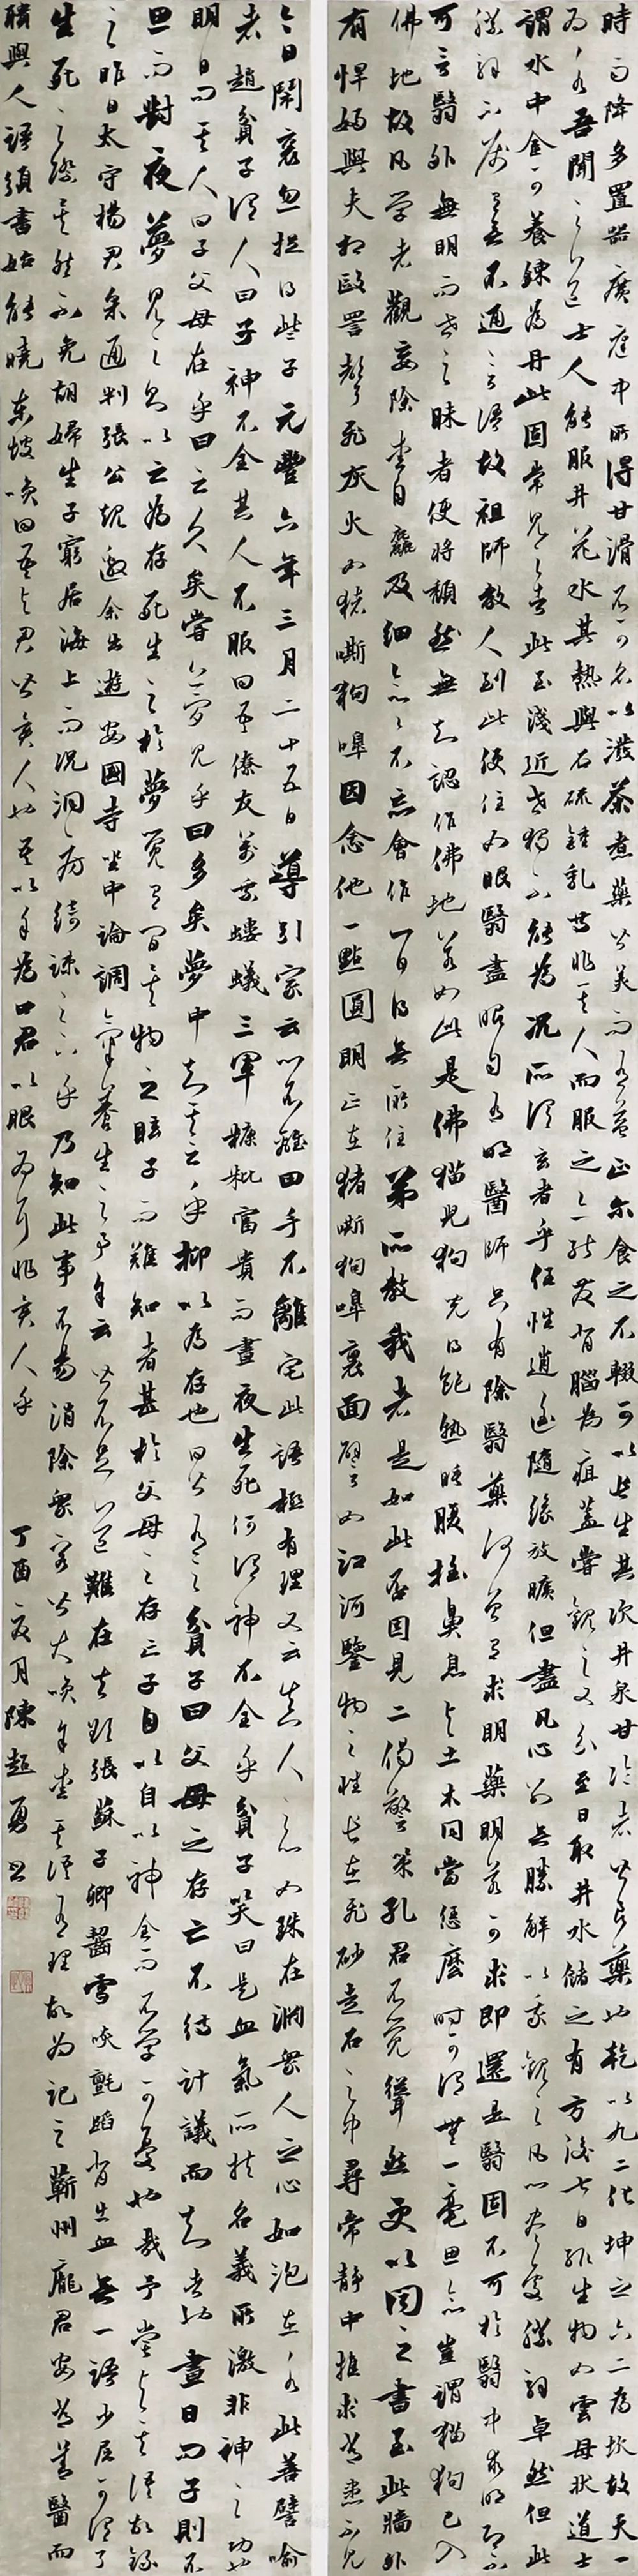 時雨降多置器廣庭中所得甘滑不可名以潑茶煮藥皆美而有益正尔食之不輟可以長生其次井泉甘冷者皆良藥也乾以九二化坤之六二為坎故天一
為水吾聞之道士人能服井花水其熱與石硫鍾乳等非其人而服之亦能發背腦為疽蓋嘗觀之又分至日取井水儲之有方後七日輒生物如雲母狀道士
謂水中金可養鍊為丹此固常見之者此至淺近世獨不能為況所謂玄者乎任性逍遙隨緣放曠但盡凡心別無勝解以我觀之凡心盡處勝解卓然但此
勝解不屬有無不通言語故祖師教人到此便住如眼翳盡眼自有明醫師只有除翳藥何曾有求明藥明若可求即還是翳固不可於翳中求明即不
可言翳外無明而世之昧者便將頹然無知認作佛地若如此是佛猫兒狗兒得飽熟睡腹搖鼻息與土木同當恁麼時可謂無一毫思念豈謂猫狗已入
佛地故凡學者觀妄除愛自麤及細念念不忘會作一日得無所住弟所教我者是如此否因見二偈警策孔君不覺聳然更以問之書至此牆外
有悍婦與夫相毆詈聲飛灰火如豬嘶狗嗥因念他一點圓明正在豬嘶狗嗥裏面譬如江河鑒物之性長在飛砂走石之中尋常靜中推求常患不見
今日鬧裏忽捉得些子元豐六年三月二十五日導引家云心不離田手不離宅此語極有理又云真人之心如珠在淵眾人之心如泡在水此善譬喻
者趙貧子謂人曰子神不全其人不服曰吾僚友萬乘螻蟻三軍糠粃富貴而晝夜生死何謂神不全乎貧子笑曰是血氣所扶名義所激非神之功也
明日問其人曰子父母在乎曰亡久矣嘗夢見乎曰多矣夢中知其亡乎抑以為存也曰皆有之貧子曰父母之存亡不待計議而知者也晝日問子則不
思而對夜夢見之則以亡為存死生之於夢覺有間矣物之眩子而難知者甚於父母之存亡子自以神全而不學可憂也哉予嘗與其語故錄
之昨日太守楊君采通判張公規邀余出遊安國寺坐中論調氣養生之事余云皆不足道難在去欲張蘇子卿齧雪啖氈蹈背出血無一語少屈可謂了
生死之際矣然不免胡婦生子窮居海上而況洞房綺疎之下乎乃知此事不易消除眾客皆大笑余愛其語有理故為記之蘄州龐君安常善醫而
聵與人語須書始能曉東坡笑曰吾與君皆異人也吾以手為口君以眼為耳非異人乎 丁酉夏月陳超勇書